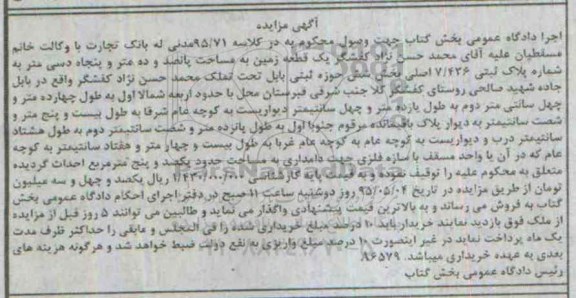 آگهی مزایده
اجرا دادگاه عمومی بخش کتاب جهت وصول محکوم به در کلاسه 95/71مدنی له بانک تجارت با وکالت خانم
مسقطیان علیه آقای محمد حسن نژاد کفشگر یک قطعه زمین به مساحت پانصد و ده متر و پنجاه دسی متر به
شماره پلاک ثبتی 7/436 اصلی بخش شش حوزه ثبتی بابل تحت تملک محمد حسن نژاد کفشگر واقع در بابل
جاده شهید صالحی روستای کفشگر کلا جنب شرقی قبرستان محل با حدود اربعه شمالا اول به طول چهارده متر و
چهل سانتی متر دوم به طول یازده متر و چهل سانتیمتر دیواریست به کوچه عام شرقا به طول بیست و پنج متر و
شصت سانتیمتر به دیوار پلاک باقیمانده مرقوم جنوبا اول به طول پانزده متر و شصت سانتیمتر دوم به طول هشتاد
سانتیمتر درب و دیواریست به کوچه عام به کوچه عام غربا به طول بیست و چهار متر و هفتاد سانتیمتر به کوچه
عام که در آن یا واحد مسقف با سازه فلزی جهت دامداری به مساحت حدود یکصد و پنج مترمربع احداث گردیده
متعلق به محکوم علیه را توقیف نموده و به قیمت پایه کارشناسی ریال یکصد و چهل و سه میلیون
تومان از طریق مزایده در تاریخ 95/05/04 روز دوشنبه ساعت 11 صبح در دفتر اجرای احکام دادگاه عمومی بخش
کتاب به فروش می رساند و به بالاترین قیمت پیشنهادی واگذار می نماید و طالبین می توانند 5 روز قبل از مزایده
از ملک فوق بازدید نمایند خریدار باید 10 درصد مبلغ خریداری شده را فی المجلس و مابقی را حداکثر ظرف مدت
یک ماه پرداخت نماید در غیر اینصورت 10 درصد مبلغ واریزی به نفع دولت ضبط خواهد شد و هرگونه هزینه های
بعدی به عهده خریداری میباشد. 96579
رئیس دادگاه عمومی بخش کتاب